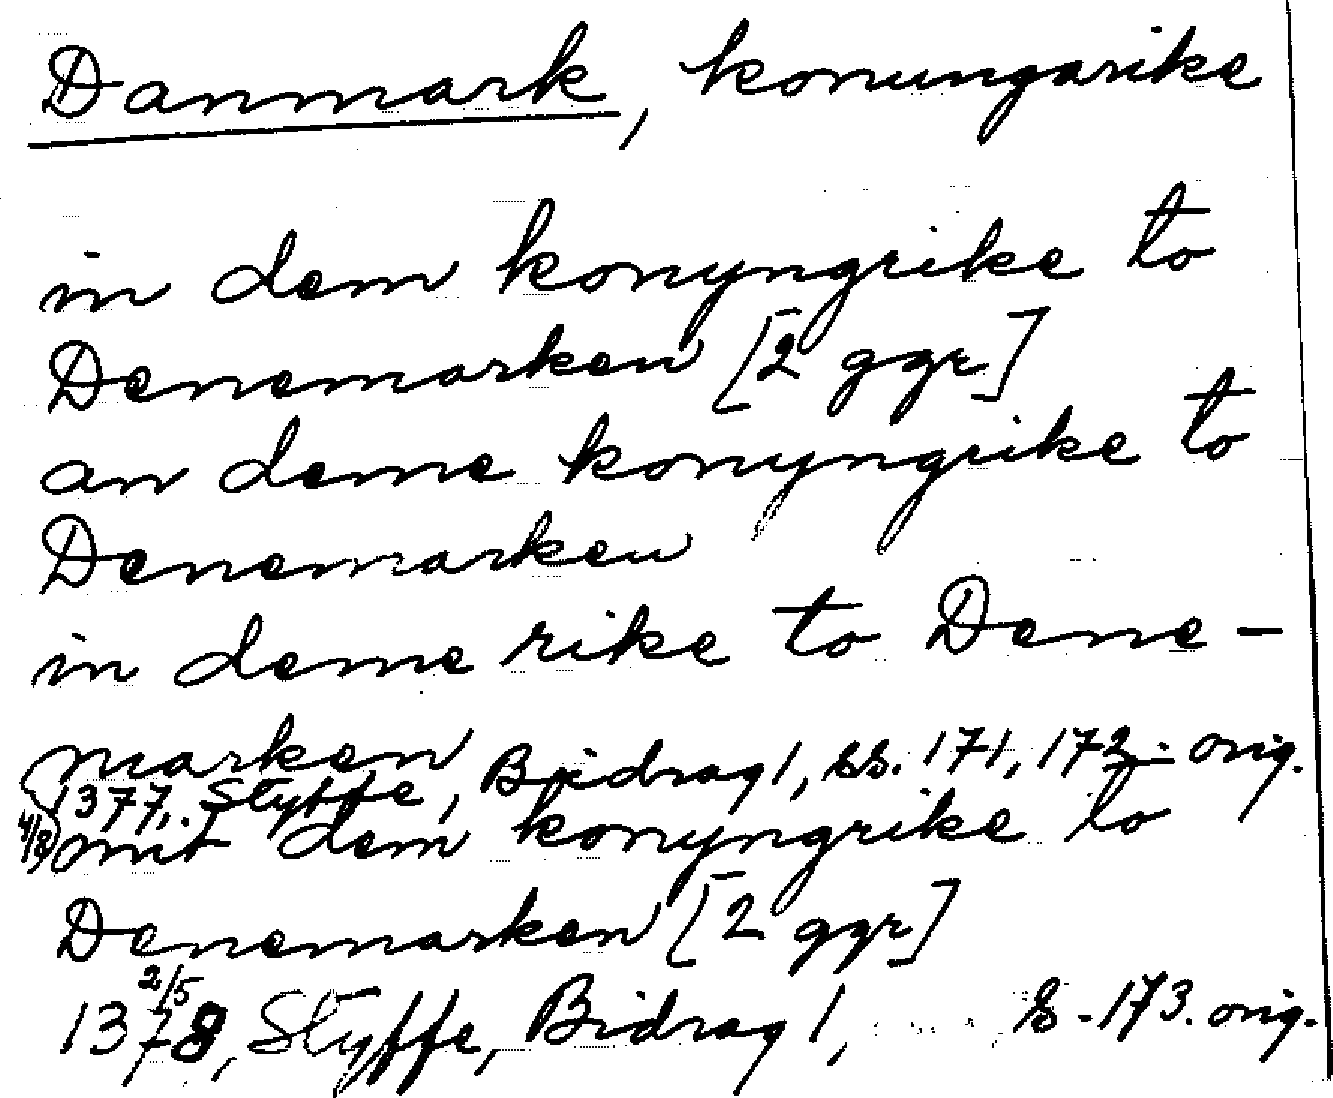 Danmark, konungarike
in dem konyngrike to
Denemarken [2 ggr]
an deme konyngrike to
Denemarken
in deme rike to Dene-
marken
4/8 1377, Styffe, Bidrag 1, ss. 171, 172. orig.
mit dem konyngrike to
Denemarken [2 ggr]
2/5 1378, Styffe, Bidrag 1, s. 173. orig.